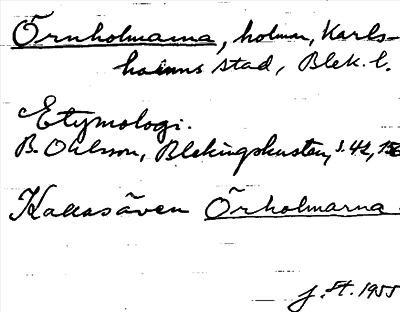 Örnholmarna, holmar, Karls-
hamns stad, Blek. l.
Etymologi.
B. Ohlsson, Blekingskusten, s. 42,
Kallas även Örholmarna.
J. St. 1955